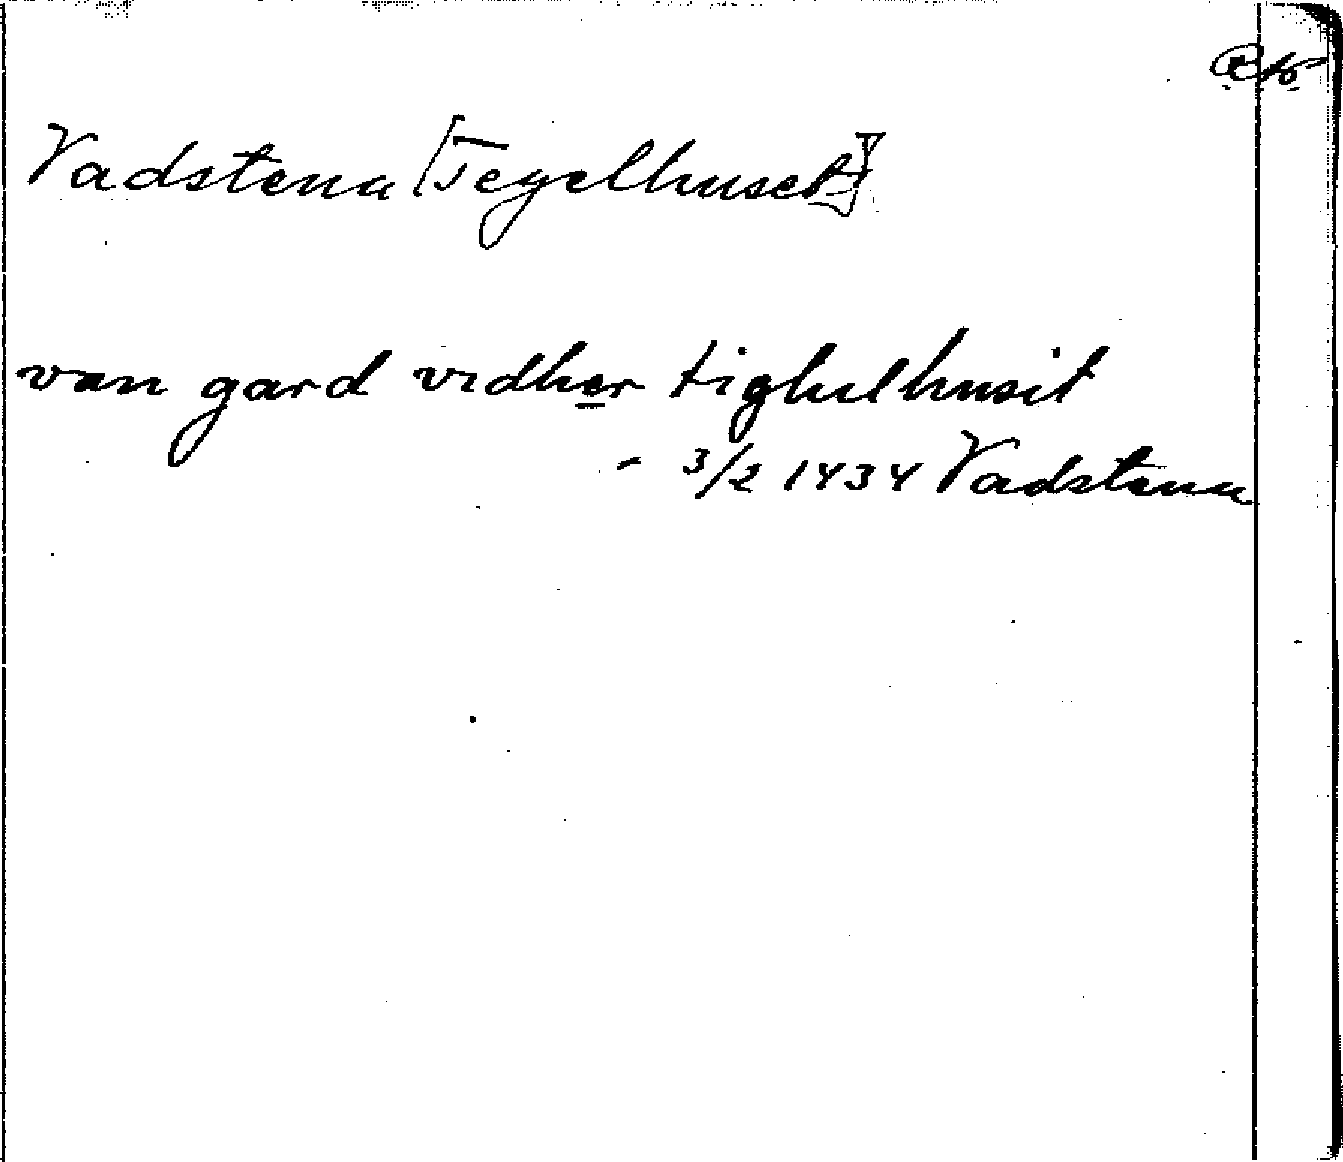 Vadstena [Tegelhuset]
van gard vidher tighilhusit
- 3/2 1434 Vadstena